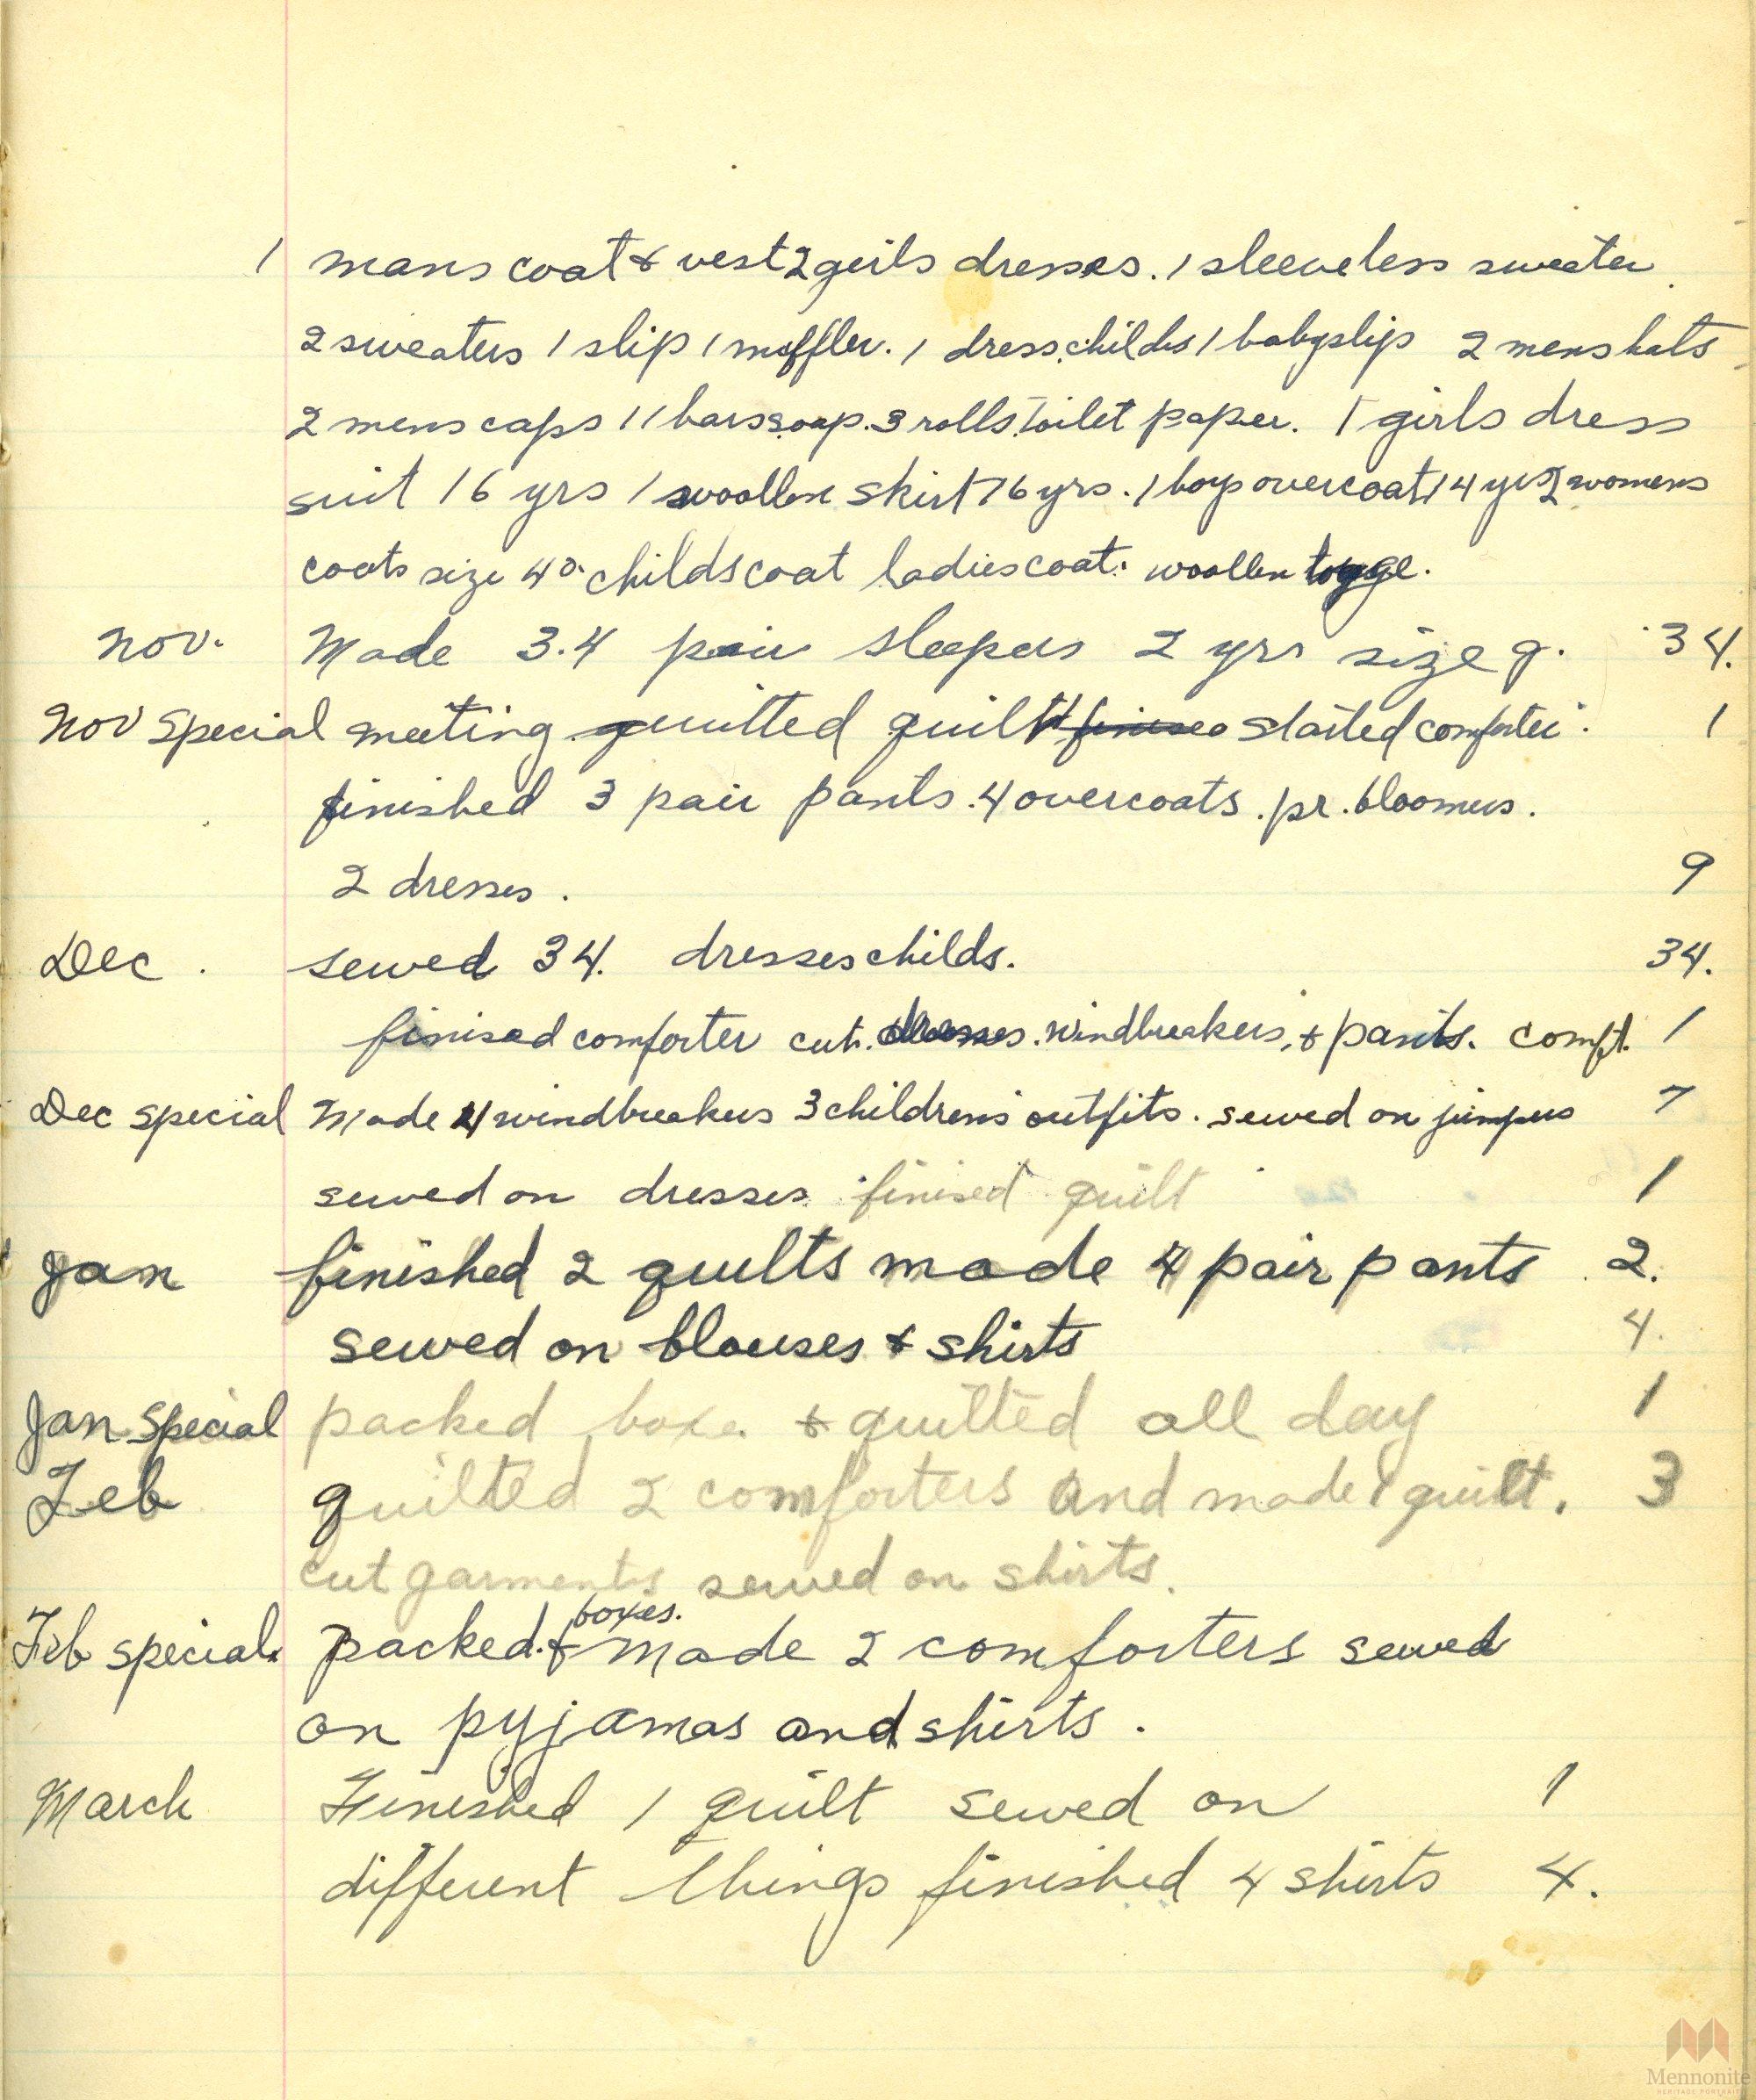 1 mans coat & vest 2 girls dresses. 1 sleeveless sweater.
2 sweaters 1 slip 1 muffler. 1 dress childs 1 babyslip 2 mens hats
2 mens caps 11 bars soap. 3 rolls toilet paper. 1 girls dress
suit 16 yrs 1 woollen skirt 16 yrs. 1 boys overcoat 14 yrs 2 womens
coats size 40. childs coat ladies coat. woollen
Nov. Made 3.4 pair sleepers 2 yrs size g. 34.
Nov special meeting quilted quilt finised started comforter. 1
finished 3 pair pants. 4 overcoats. pr. bloomers.
2 dresses. 9
Dec. sewed 34. dresses childs. 34.
finised comforter cut. dresses. windbreakers, & pants. comft. 1
Dec special Made 4 windbreakers 3 childrens outfits. sewed on jumpers 7
sewed on dresses finised quilt 1
Jan finished 2 quilts made 4 pair pants 2.
sewed on blouses & shirts 4.
Jan special packed boxe. & quilted all day 1
Feb quilted 2 comforters and made 1 quilt. 3
cut garments sewed on shirts.
boxes.
Feb special. packed. & made 2 comforters sewed
on pyjamas and shirts.
March Finished 1 quilt sewed on 1
different things finished 4 shirts 4.
Mennonite
HERITAGE PORTRAIT